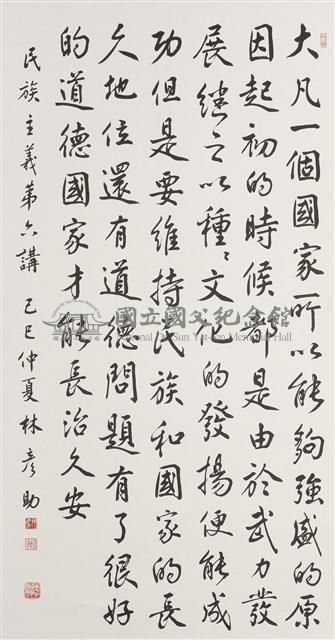 大凡一個國家所以能夠強盛的原
因起初的時候都是由於武力發
展繼之以種種文化的發揚便能成
功但是要維持民族和國家的長
久地位還有道德問題有了很好
的道德國家才能長治久安
民族主義第六講 己巳仲夏林彥助
國立國父紀念館
National Dr. Sun Yat-sen Memorial Hall